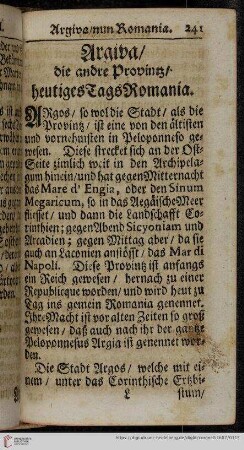 Argiva/nun Romania. 241
Argiva/
die andre Provintz/
heutiges Tags Romania.
ARgos/ so wol die Stadt/ als die
Provintz/ ist eine von den ältisten
und vornehmsten in Peloponneso ge-
wesen. Diese strecket sich an der Ost-
Seite zimlich weit in den Archipela-
gum hinein/ und hat gegen Mitternacht
das Mare d' Engia, oder den Sinum
Megaricum, so in das Aegäische Meer
fliesset/ und dann die Landschafft Co-
rinthien; gegen Abend Sicyoniam und
Arcadien; gegen Mittag aber/ da sie
auch an Laconien anstösst/ das Mar di
Napoli. Diese Provintz ist anfangs
ein Reich gewesen/ hernach zu einer
Republicque worden/ und wird heut zu
Tag ins gemein Romania genennet.
Ihre Macht ist vor alten Zeiten so groß
gewesen/ daß auch nach ihr der gantze
Peloponnesus Argia ist genennet wor-
den.
Die Stadt Argos/ welche mit ei-
nem/ unter das Corinthische Ertzbi-
L stum/